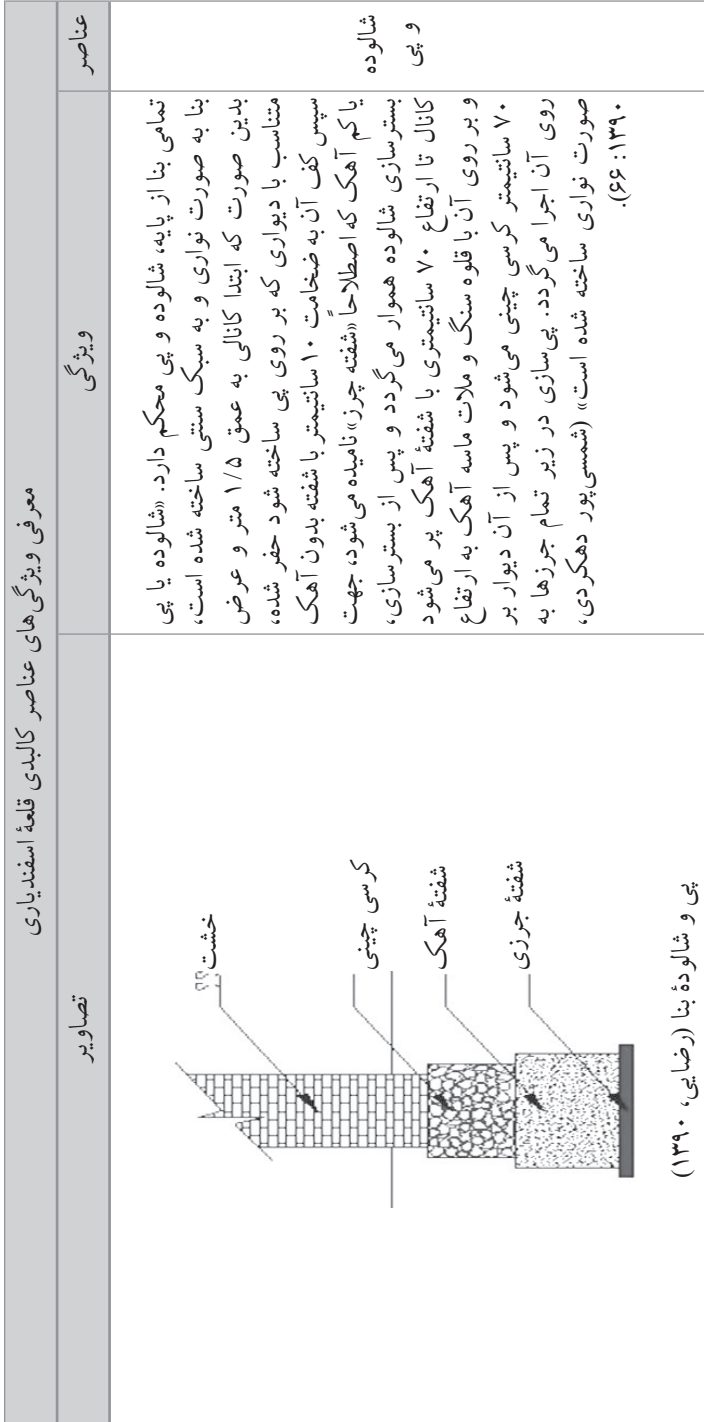 معرفی ویژگی‌های عناصر کالبدی قلعهٔ اسفندیاری
عناصر
ویژگی
تصاویر
شالوده
و پی
تمامی بنا از پایه، شالوده و پی محکم دارد. «شالوده یا پی
بنا به صورت نواری و به سبک سنتی ساخته شده است،
بدین صورت که ابتدا کانالی به عمق ۱/۵ متر و عرض
متناسب با دیواری که بر روی پی ساخته شود حفر شده،
سپس کف آن به ضخامت ۱۰ سانتیمتر با شفته بدون آهک
یا کم آهک که اصطلاحاً «شفته چرز» نامیده می‌شود، جهت
بسترسازی شالوده هموار می‌گردد و پس از بسترسازی،
کانال تا ارتفاع ۷۰ سانتیمتری با شفتهٔ آهک پر می‌شود
و بر روی آن با قلوه سنگ و ملات ماسه آهک به ارتفاع
۷۰ سانتیمتر کرسی چینی می‌شود و پس از آن دیوار بر
روی آن اجرا می‌گردد. پی‌سازی در زیر تمام جرزها به
صورت نواری ساخته شده است» (شمسی‌پور دهکردی،
۱۳۹۰: ۶۶).
خشت
کرسی چینی
شفتهٔ آهک
شفتهٔ جرزی
پی و شالودهٔ بنا (رضایی، ۱۳۹۰)